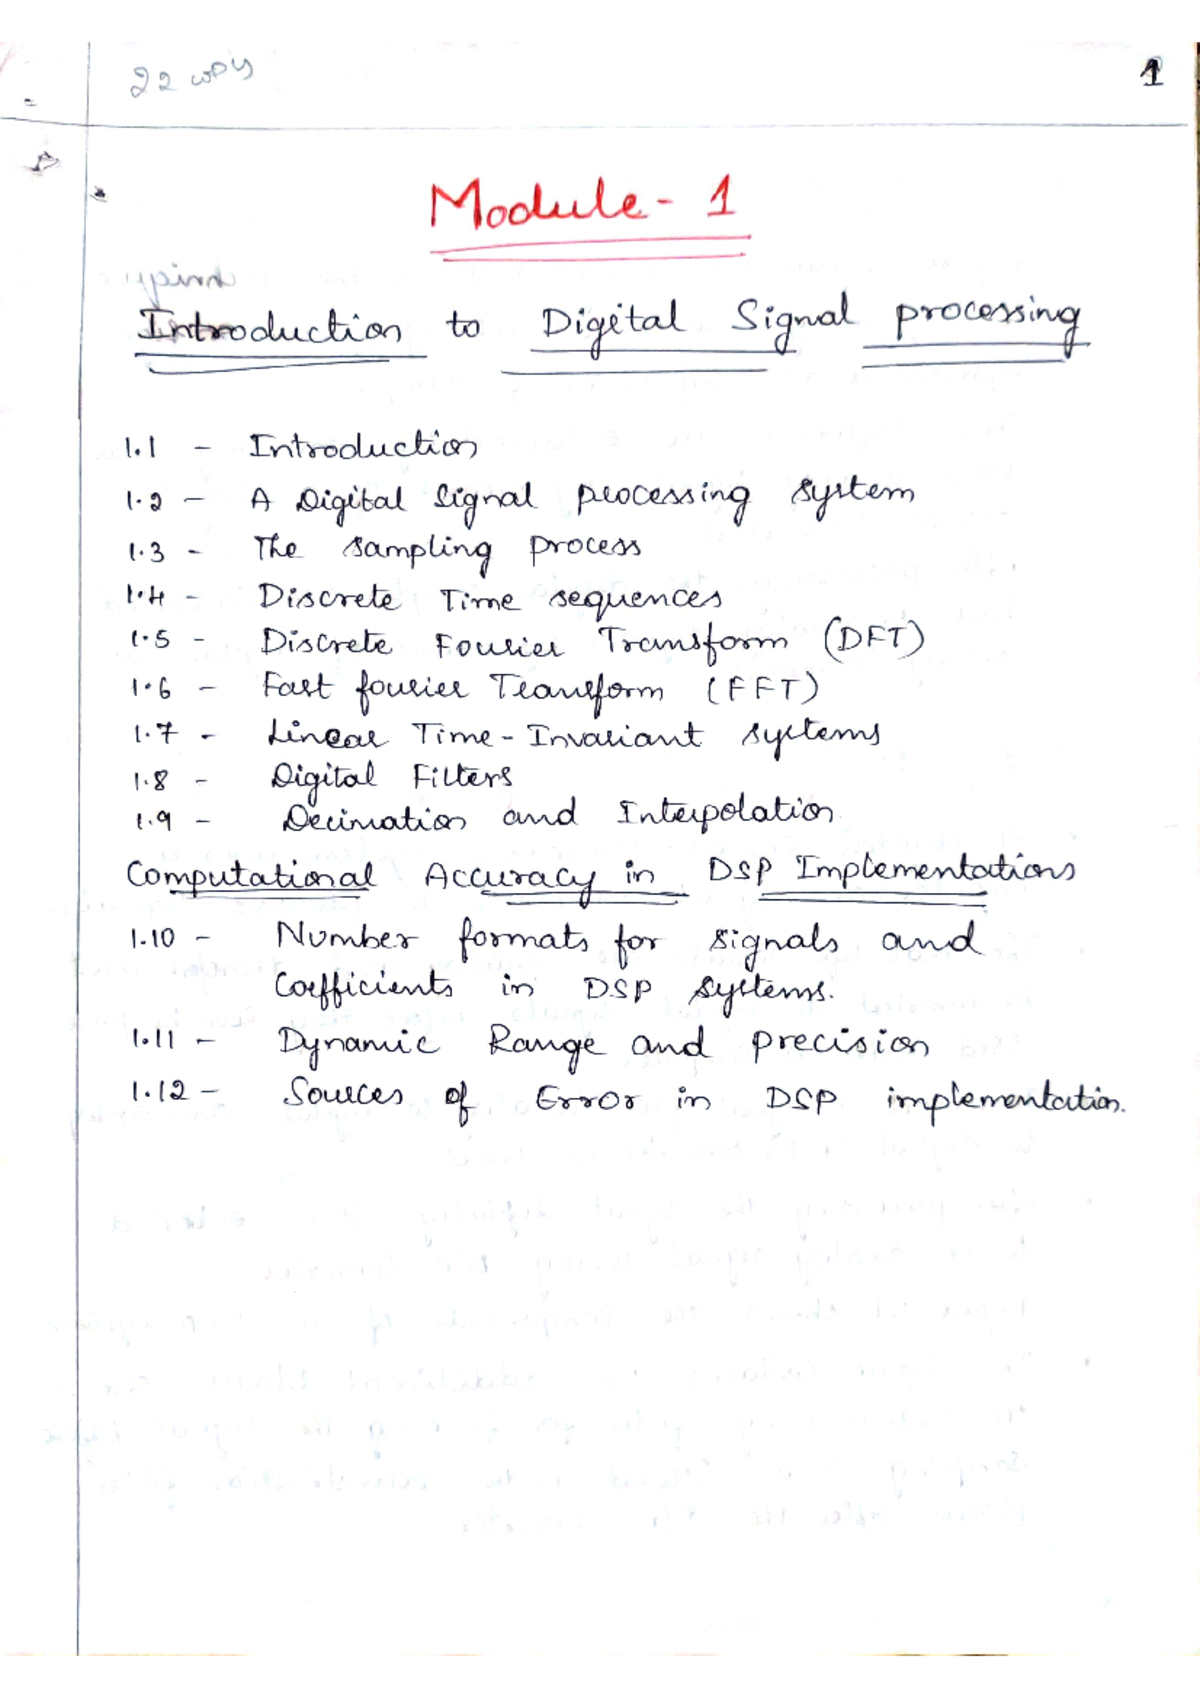 1
Module - 1
Introduction to Digital Signal processing
1.1 - Introduction
1.2 - A Digital Signal processing system
1.3 - The sampling process
1.4 - Discrete Time sequences
1.5 - Discrete Fourier Transform (DFT)
1.6 - Fast fourier Transform (FFT)
1.7 - Linear Time-Invariant systems
1.8 - Digital Filters
1.9 - Decimation and Interpolation
Computational Accuracy in DSP Implementations
1.10 - Number formats for signals and
Coefficients in DSP systems.
1.11 - Dynamic Range and precision
1.12 - Sources of Error in DSP implementation.